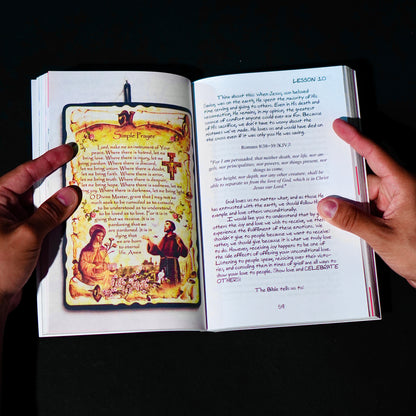 Simple Prayer
Lord, make me an instrument of Your
peace. Where there is hatred, let me
bring love. Where there is injury, let me
bring pardon. Where there is discord,
let me bring union. Where there is doubt,
let me bring faith. Where there is
despair, let me bring hope. Where
there is sadness, let me bring
joy. Where there is darkness, let me bring light.
O Divine Master, grant that I may not so
much seek to be consoled as to
console, to be understood as to understand,
to be loved as to love. For it is in
giving that we receive. It is in
pardoning that we
are pardoned. It is in
dying that
we are born
to eternal
life. Amen
LESSON 10
Think about this: When Jesus, our beloved
Savior, was on the earth, He spent the majority of His
time serving and giving to others. Even in His death and
resurrection, He remains, in my opinion, the greatest
source of comfort anyone could ever ask for. Because
of His sacrifice, we don't have to worry about the
mistakes we've made. He loves us and would have died on
the cross even if it was only you He was saving.
Romans 8:38-39 (KJV):
"For I am persuaded, that neither death, nor life, nor an-
gels, nor principalities, nor powers, nor things present, nor
things to come,
Nor height, nor depth, nor any other creature, shall be
able to separate us from the love of God, which is in Christ
Jesus our Lord."
God loves us no matter what, and as those
associated with the earth, we should follow
example and love others unconditionally.
I would like you to understand that by giving
others the joy and love we wish to receive, we
experience the fulfillment of these emotions. We
shouldn't give to people because we want to receive;
rather, we should give because it is what we truly love
to do. However, receiving joy happens to be one of
the side effects of offering your unconditional love.
Listening to people speak, rejoicing over victo-
ries, and consoling them in times of grief are all ways to
show your love to people. Show love and CELEBRATE
OTHERS!
The Bible tells us to:
59